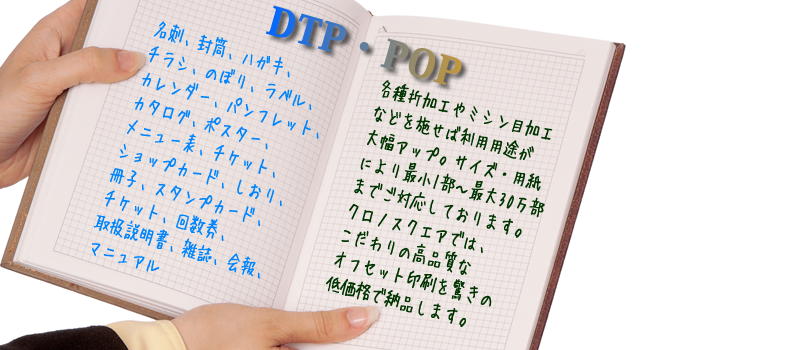 DTP・POP
名刺、封筒、ハガキ、
チラシ、のぼり、ラベル、
カレンダー、パンフレット、
カタログ、ポスター、
メニュー表、チケット、
ショップカード、しおり、
冊子、スタンプカード、
チケット、回数券、
取扱説明書、雑誌、会報、
マニュアル
各種折加工やミシン目加工
などを施せば利用用途が
大幅アップ。サイズ・用紙
により最小1部～最大30万部
までご対応しております。
クロノスクエアでは、
こだわりの高品質な
オフセット印刷を驚きの
低価格で納品します。